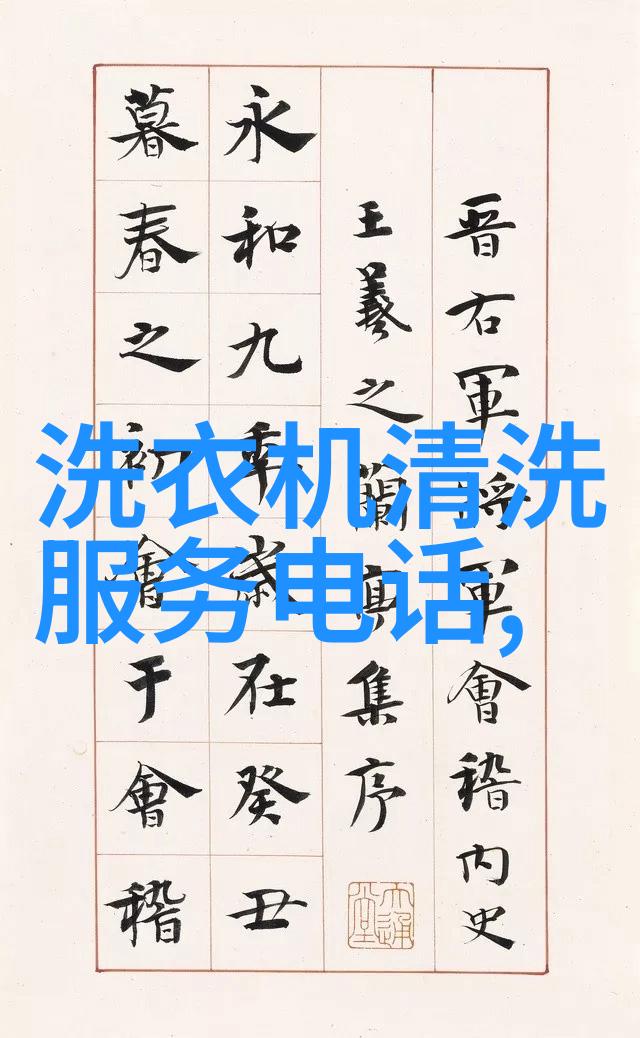 晋右軍将軍會稽内史
王羲之蘭亭集序
永和九年歲在癸丑
暮春之初會于會稽
洗衣机清洗
服务电话,